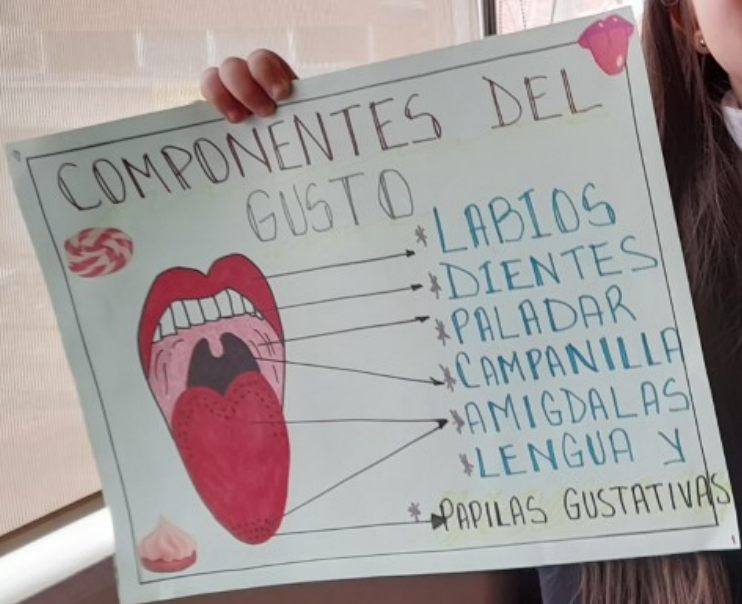 COMPONENTES DEL
GUSTO
* LABIOS
* DIENTES
* PALADAR
* CAMPANILLA
* AMIGDALAS
* LENGUA Y
* PAPILAS GUSTATIVAS